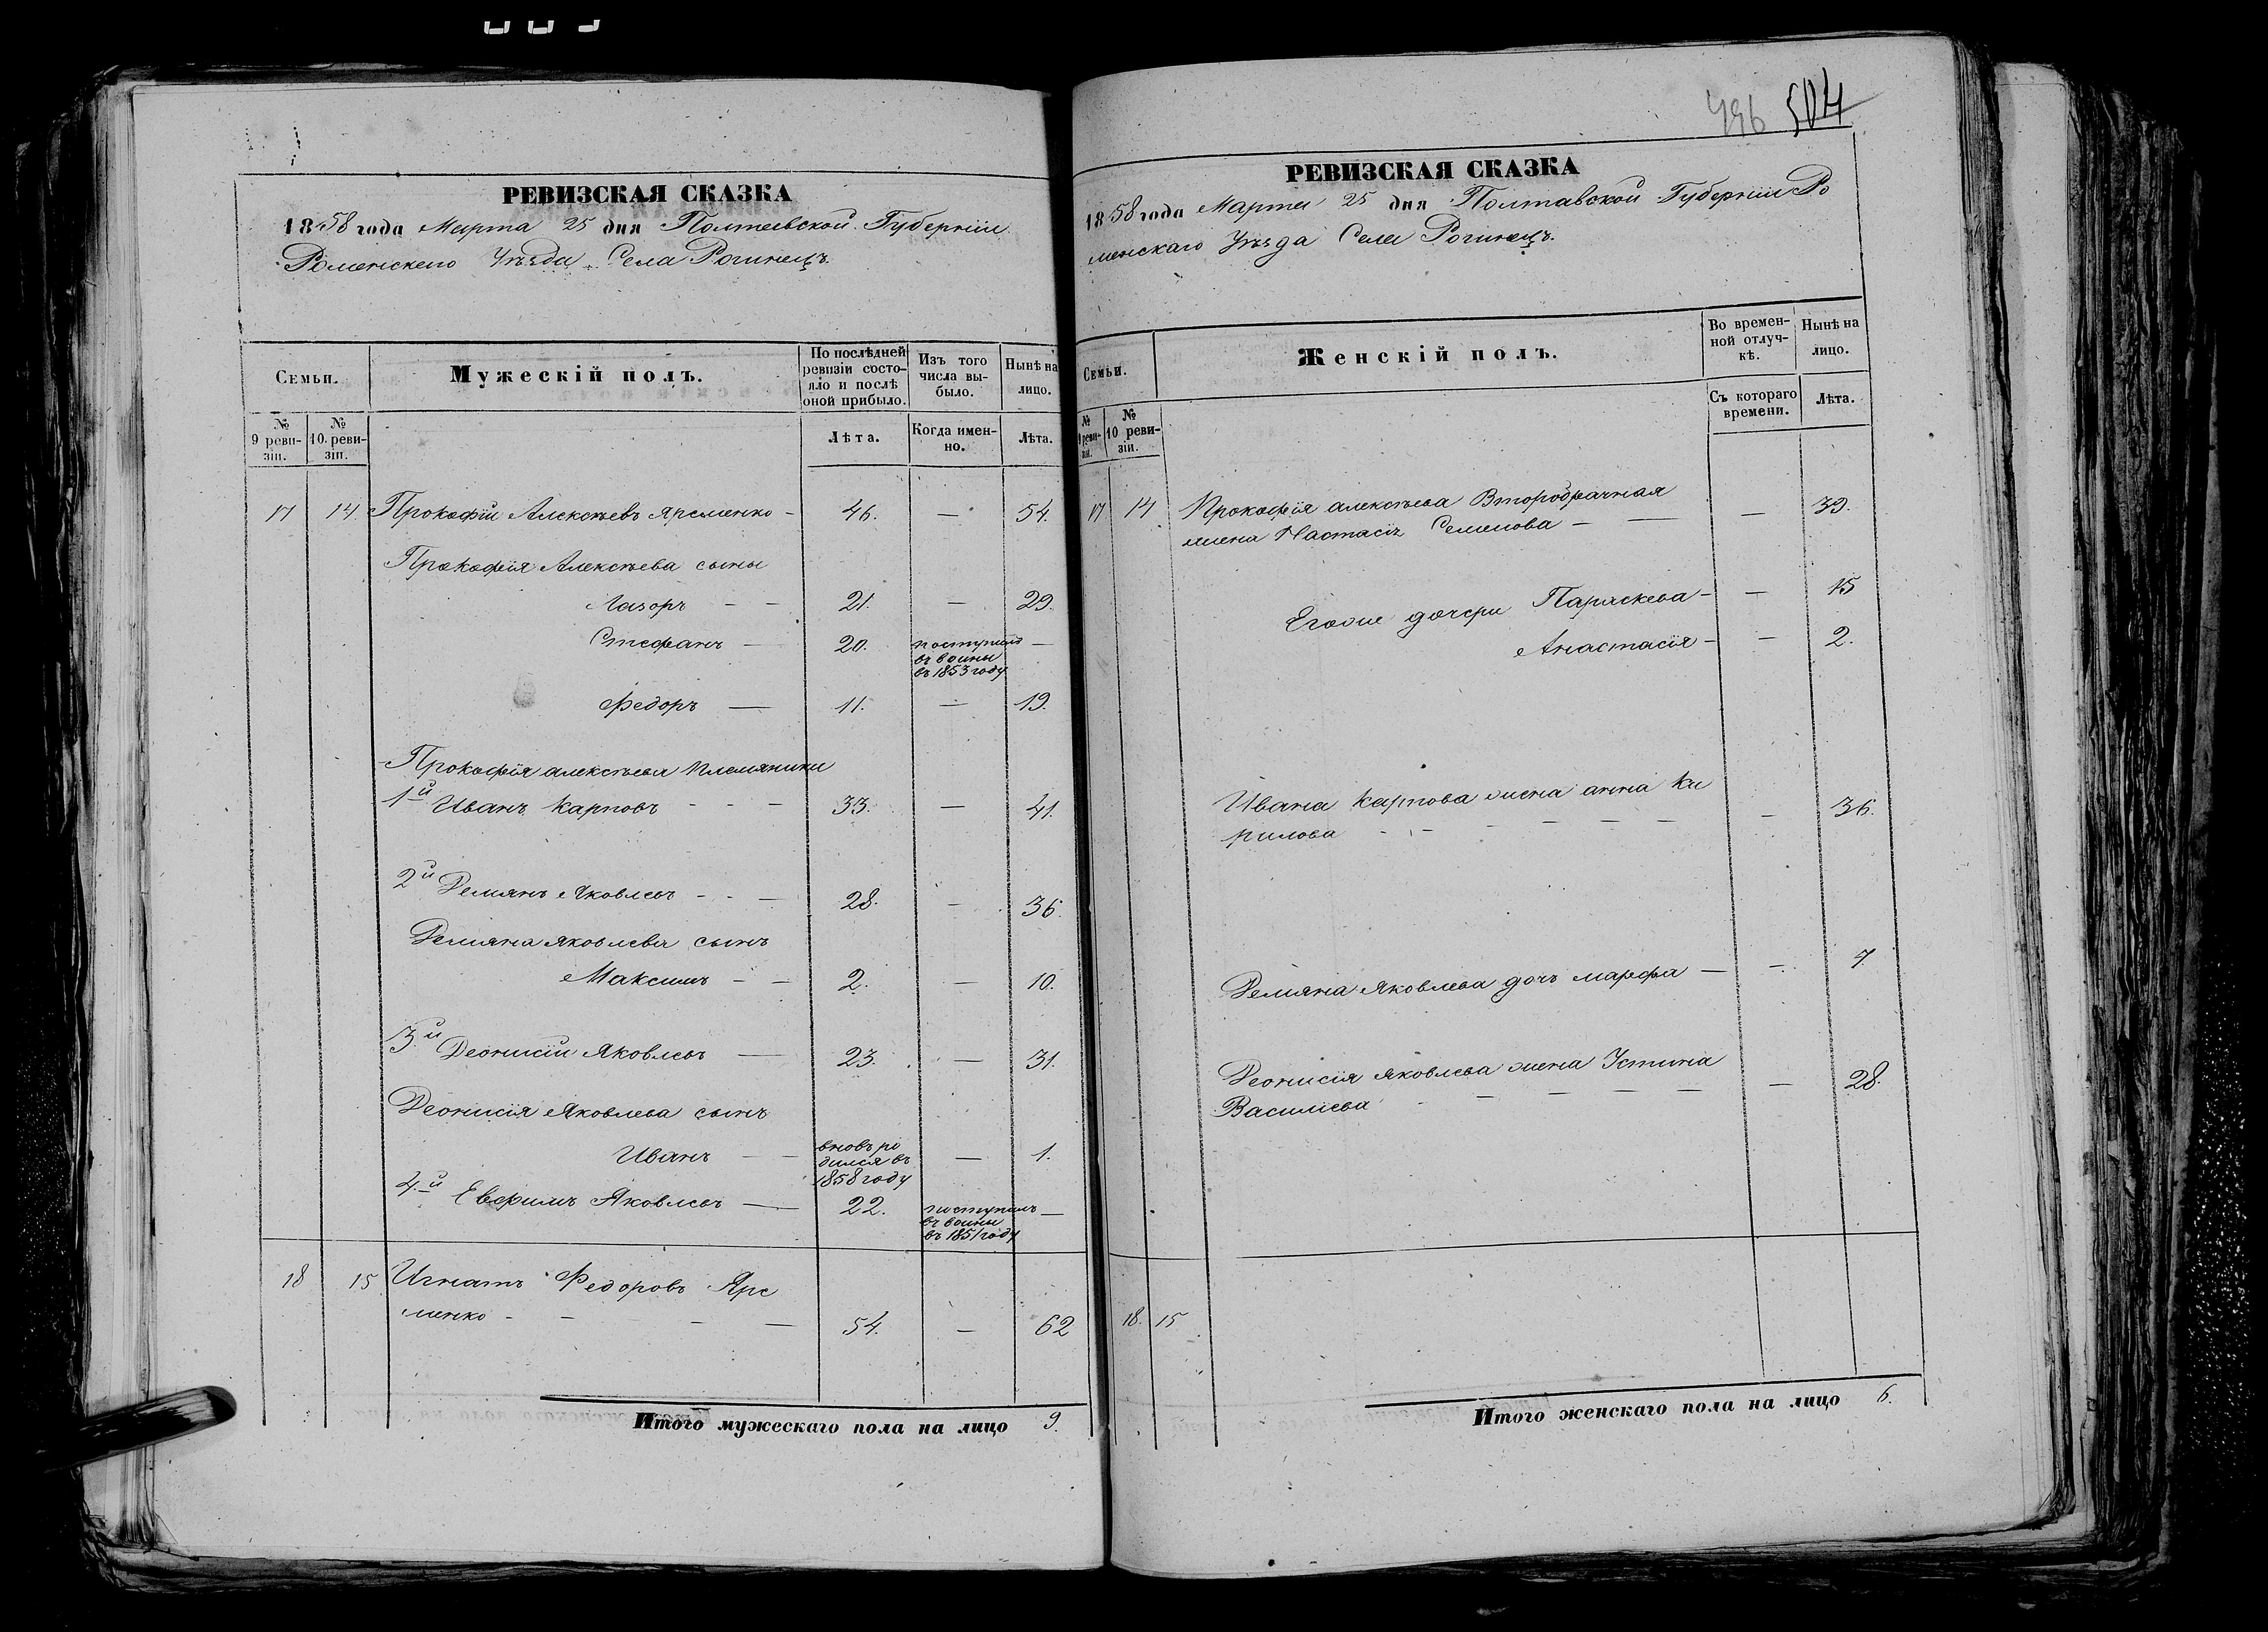 РЕВИЗСКАЯ СКАЗКА
1858 года Марта 25 дня Полтавской Губернiи
Роменскаго Уѣзда Села Рогинецъ.
Семьи.
Мужескiй полъ.
По послѣдней ревизiи состояло и послѣ оной прибыло.
Изъ того числа выбыло.
Нынѣ на лицо.
№ 9 ревизiи.
№ 10 ревизiи.
Лѣта.
Когда именно.
Лѣта.
17 14. Прокофiй Алексѣевъ Яременко - 46. — 54.
Прокофiя Алексѣева сыны
Лазоръ — — 21. — 29.
Стефанъ — 20. поступилъ —
въ воины
въ 1853 году
Федоръ — 11. — 19.
Прокофiя алексѣева племяники
1й Иванъ Карповъ - - - 33. — 41.
2й Демянъ Яковлевъ - - — 28. — 36.
Демяна Яковлева сынъ
Максимъ - — 2. — 10.
3й Деонисiй Яковлевъ — 23. — 31.
Деонисiя Яковлева сынъ
Иванъ — — вновь ро — 1.
дился въ
1858 году
4й Евфимъ Яковлевъ — 22. поступилъ —
въ воины
въ 1851 году
18 15 Игнатъ Федоровъ Яре
менко - — — - — 54. — 62
Итого мужескаго пола на лицо 9.
496 504
РЕВИЗСКАЯ СКАЗКА
1858 года Марта 25 дня Полтавской Губернiи Ро
менскаго Уѣзда Села Рогинецъ.
Семьи.
Женскiй полъ.
Во временной отлучкѣ.
Нынѣ на лицо.
№ 9 ревизiи.
№ 10 ревизiи.
Съ котораго времени.
Лѣта.
17 14 Прокофiя алексѣева Второбрачная
жена Настасiя Семенова — — — 39.
Егоже дочери Параскева — — 15
Анастасiя — — 2.
Ивана Карпова жена анна Ки
рилова - - - — — — — 36.
Демяна Яковлева дочь марфа — — 7.
Деонисiя Яковлева жена Устина
Василiева - — — — — — 28.
18. 15
Итого женскаго пола на лицо 6.